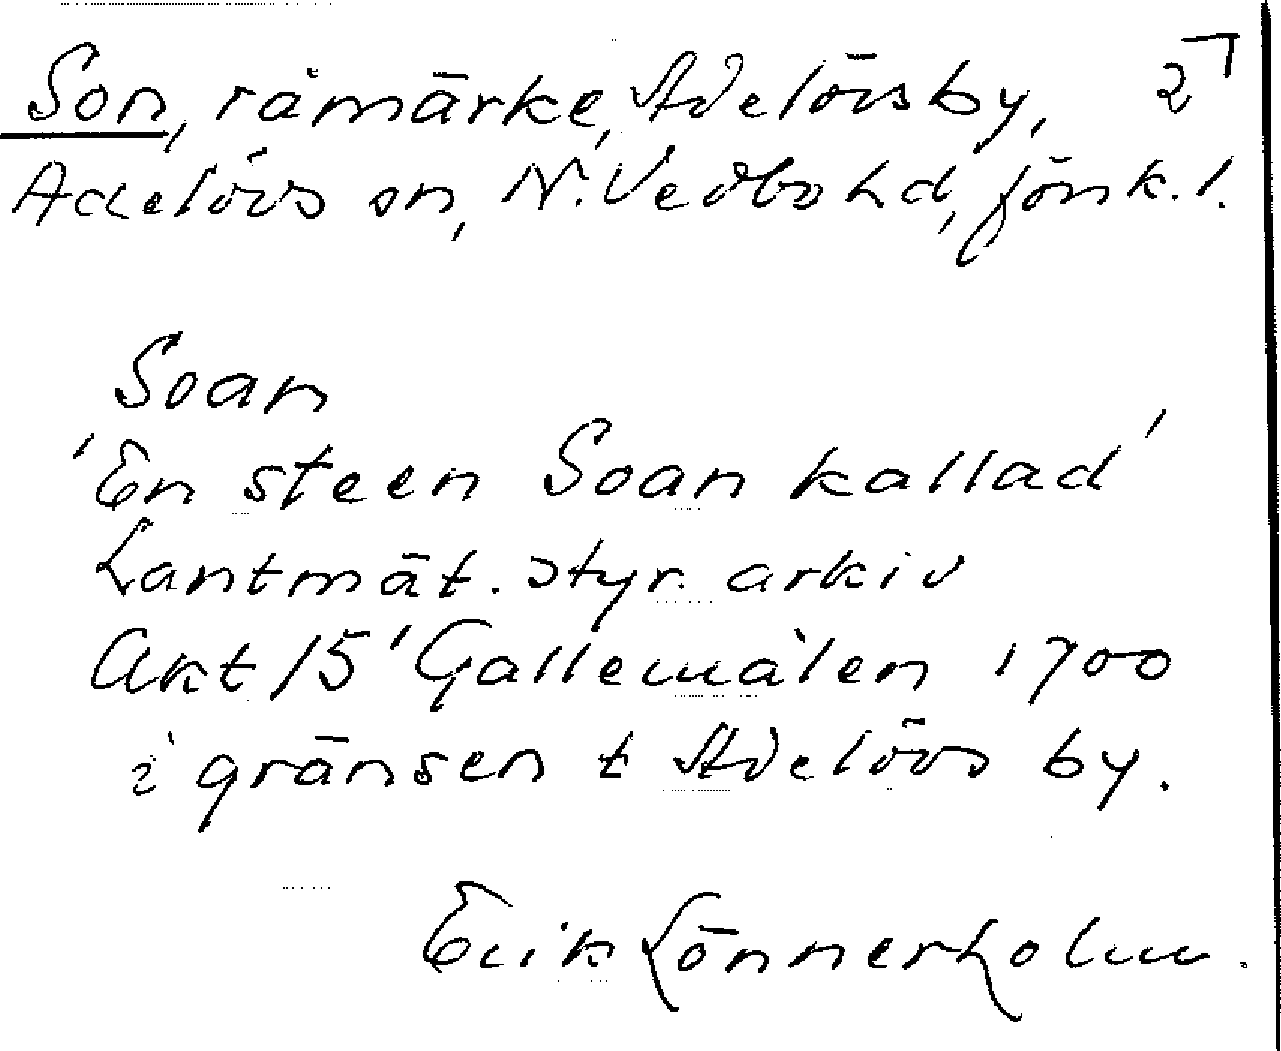 Son, råmärke, Adelövs by, 27
Adelövs sn, N. Vedbo hd, Jönk. l.
Soan
'En steen Soan kallad'
Lantmät. styr. arkiv
Akt 15 'Gallemålen 1700
i gränsen t Adelövs by.
Erik Lönnerholm.